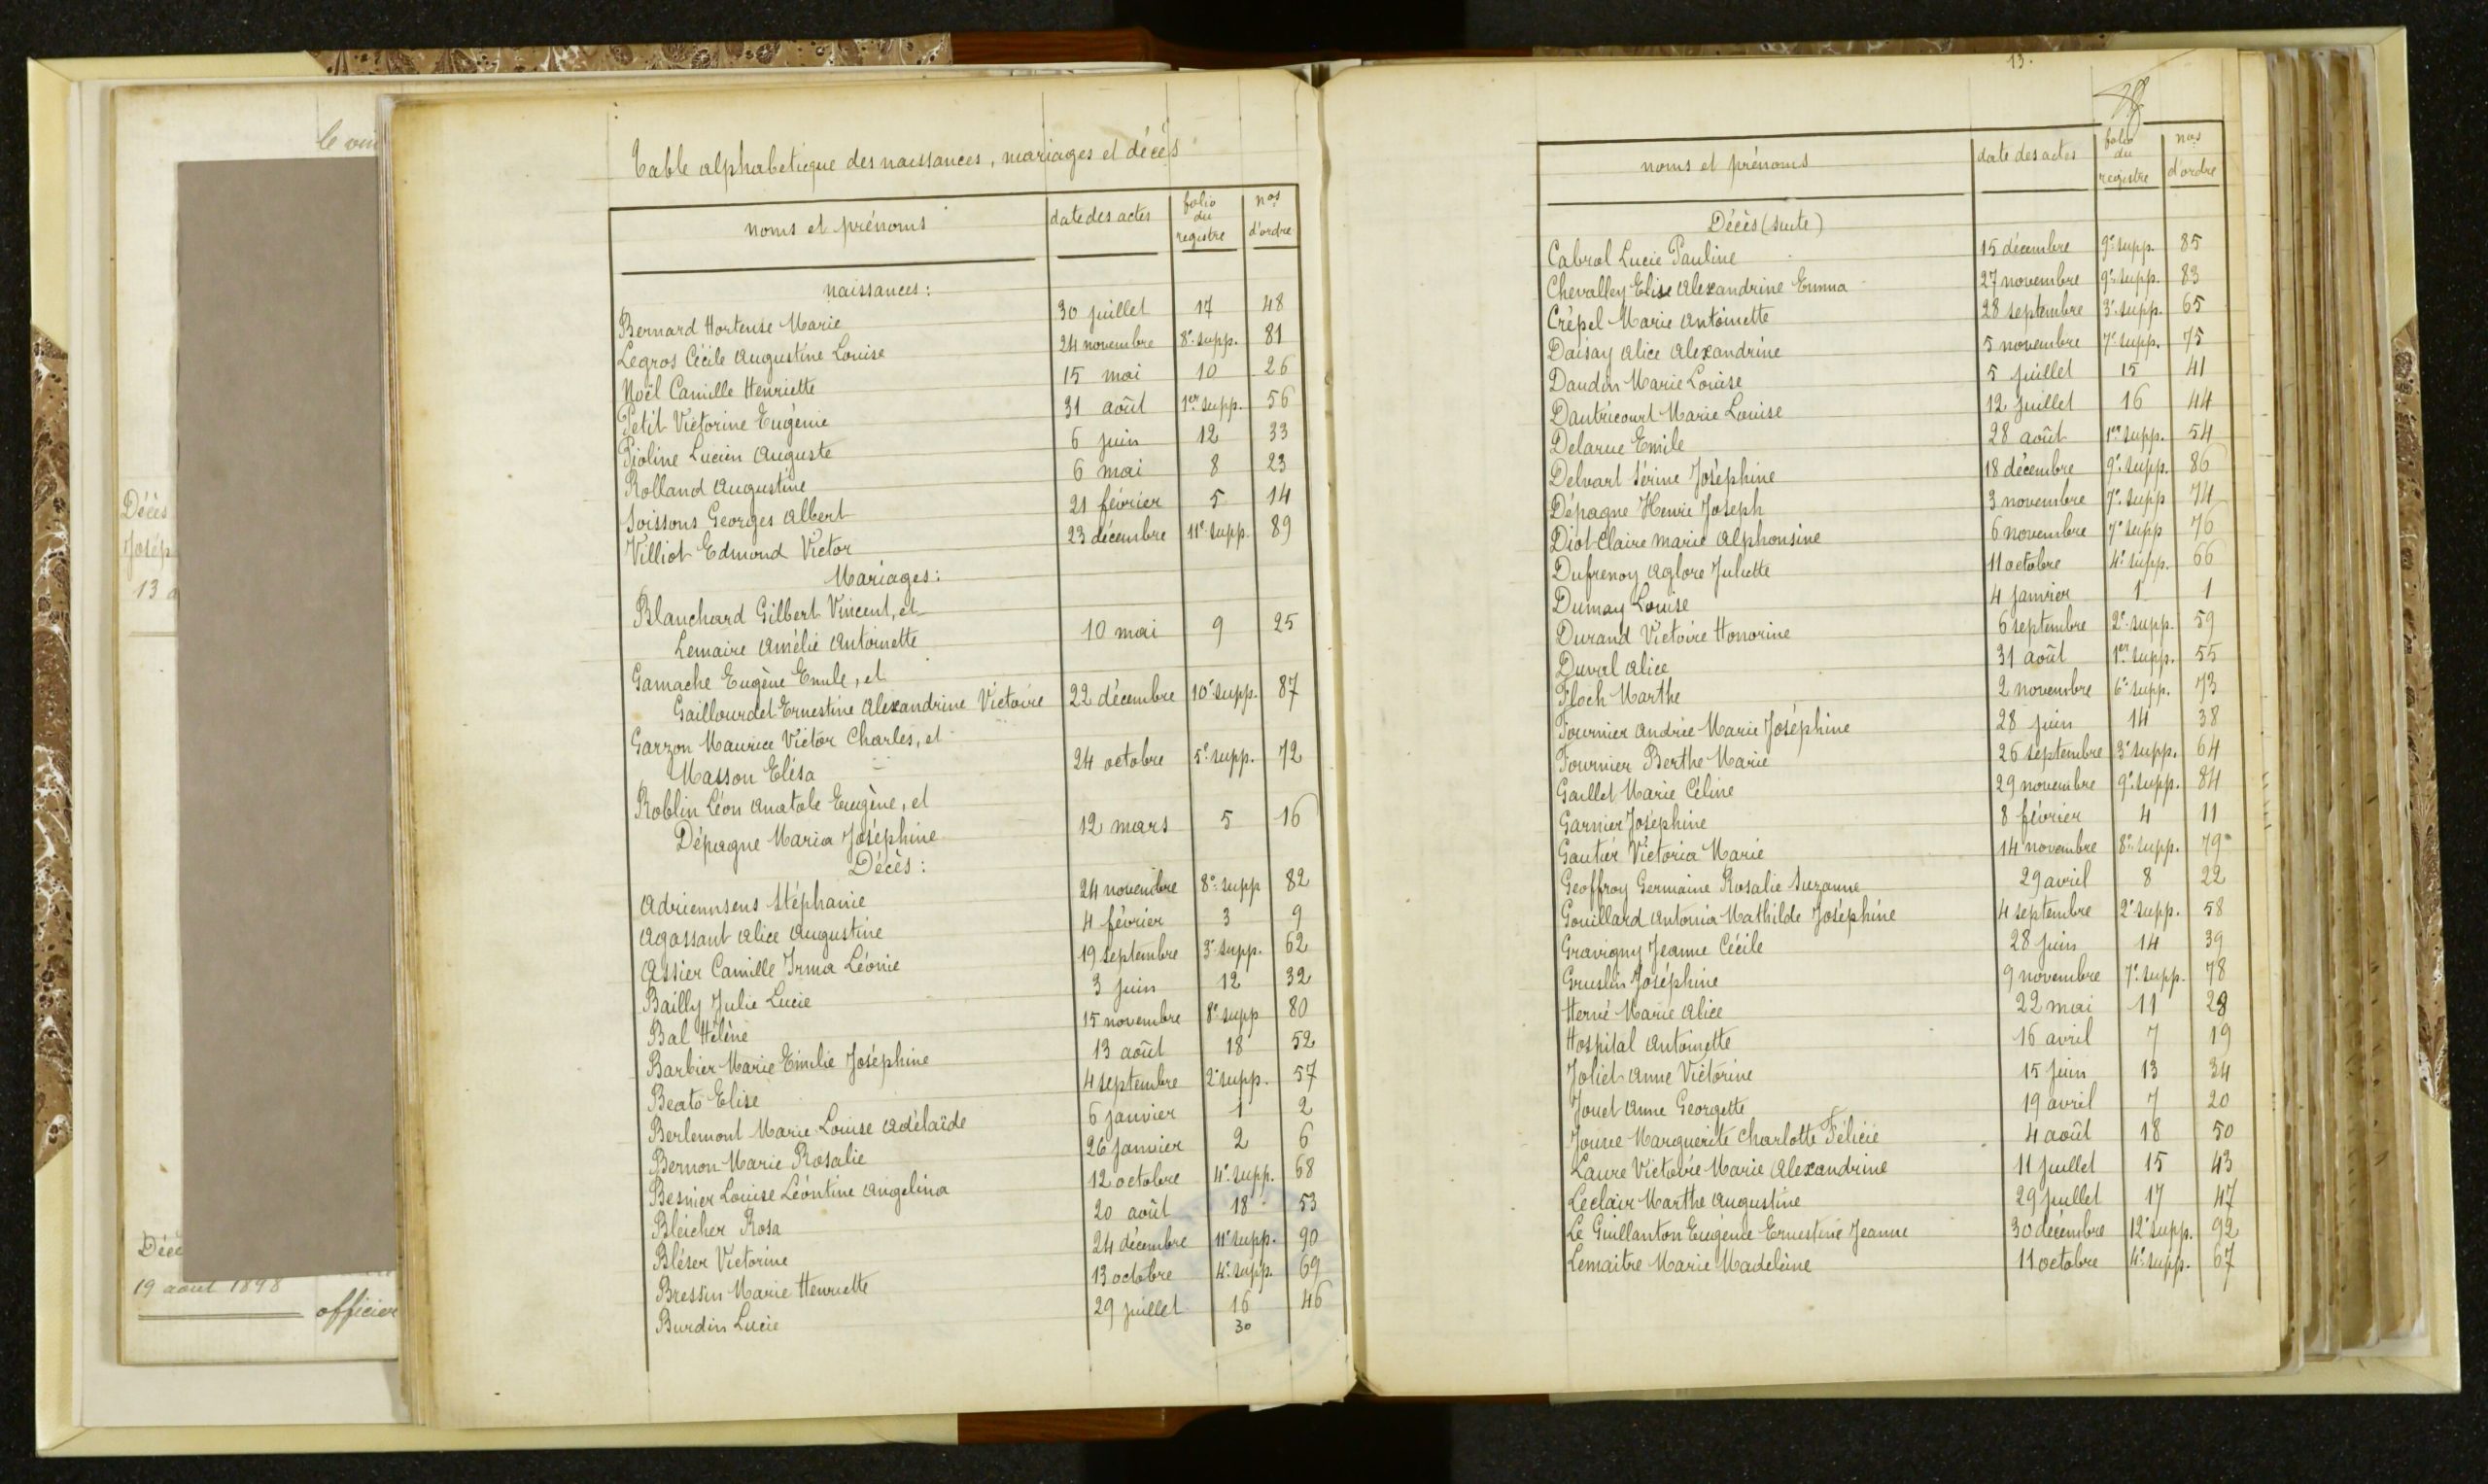 le vin
Décès
Josép
13 a
Déc
19 août 1898
officier
Table alphabétique des naissances, mariages et décès
noms et prénoms | date des actes | folio du registre | nos d'ordre
naissances:
Bernard Hortense Marie | 30 juillet | 17 | 48
Legros Cécile Augustine Louise | 24 novembre | 8e supp. | 81
Noël Camille Henriette | 15 mai | 10 | 26
Petit Victorine Eugénie | 31 août | 1er supp. | 56
Pioline Lucien Auguste | 6 juin | 12 | 33
Rolland Augustine | 6 mai | 8 | 23
Soissons Georges Albert | 21 février | 5 | 14
Villiot Edmond Victor | 23 décembre | 11e supp. | 89
Mariages:
Blanchard Gilbert Vincent, et
Lemaire Amélie Antoinette | 10 mai | 9 | 25
Gamache Eugène Emile, et
Gaillourdet Ernestine Alexandrine Victoire | 22 décembre | 10e supp. | 87
Garzon Maurice Victor Charles, et
Masson Elésa | 24 octobre | 5e supp. | 72
Roblin Léon Anatole Eugène, et
Dépagne Maria Joséphine | 12 mars | 5 | 16
Décès:
Adriennsens Stéphanie | 24 novembre | 8e supp | 82
Agassant Alice Augustine | 4 février | 3 | 9
Assier Camille Irma Léonie | 19 septembre | 3e supp. | 62
Bailly Julie Lucie | 3 juin | 12 | 32
Bal Hélène | 15 novembre | 8e supp | 80
Barbier Marie Emilie Joséphine | 13 août | 18 | 52
Beato Elise | 4 septembre | 2e supp. | 57
Berlemont Marie Louise Adélaïde | 6 janvier | 1 | 2
Bernon Marie Rosalie | 26 janvier | 2 | 6
Besnier Louise Léontine Angelina | 12 octobre | 4e supp. | 68
Bleicher Rosa | 20 août | 18 | 53
Bléser Victorine | 24 décembre | 11e supp. | 90
Bressin Marie Henriette | 13 octobre | 4e supp. | 69
Burdin Lucie | 29 juillet | 16 | 46
30
13.
noms et prénoms | date des actes | folio du registre | nos d'ordre
Décès (suite)
Cabrol Lucie Pauline | 15 décembre | 9e supp. | 85
Chevalley Elise Alexandrine Emma | 27 novembre | 9e supp. | 83
Crépel Marie Antoinette | 28 septembre | 3e supp. | 65
Daisay Alice Alexandrine | 5 novembre | 7e supp. | 75
Daudin Marie Louise | 5 juillet | 15 | 41
Dautricourt Marie Louise | 12 juillet | 16 | 44
Delarue Emile | 28 août | 1er supp. | 54
Delvart Sérine Joséphine | 18 décembre | 9e supp. | 86
Dépagne Henri Joseph | 3 novembre | 7e supp | 74
Diot Claire Marie Alphonsine | 6 novembre | 7e supp | 76
Dufrenoy Aglore Juliette | 11 octobre | 4e supp. | 66
Dumay Louise | 4 janvier | 1 | 1
Durand Victoire Honorine | 6 septembre | 2e supp. | 59
Duval Alice | 31 août | 1er supp. | 55
Floch Marthe | 2 novembre | 6e supp. | 73
Fournier Andrée Marie Joséphine | 28 juin | 14 | 38
Fournier Berthe Marie | 26 septembre | 3e supp. | 64
Gaillet Marie Céline | 29 novembre | 9e supp. | 84
Garnier Joséphine | 8 février | 4 | 11
Gautier Victoria Marie | 14 novembre | 8e supp. | 79
Geoffroy Germaine Rosalie Suzanne | 29 avril | 8 | 22
Gouillard Antonia Mathilde Joséphine | 4 septembre | 2e supp. | 58
Gravigny Jeanne Cécile | 28 juin | 14 | 39
Gruslin Joséphine | 9 novembre | 7e supp. | 78
Hervé Marie Alice | 22 mai | 11 | 29
Hospital Antoinette | 16 avril | 7 | 19
Joliet Anne Victorine | 15 juin | 13 | 34
Jouet Anne Georgette | 19 avril | 7 | 20
Jouve Marguerite Charlotte Félicie | 4 août | 18 | 50
Laure Victoire Marie Alexandrine | 11 juillet | 15 | 43
Leclair Marthe Augustine | 29 juillet | 17 | 47
Le Guillanton Eugénie Ernestine Jeanne | 30 décembre | 12e supp. | 92
Lemaitre Marie Madeleine | 11 octobre | 4e supp. | 67